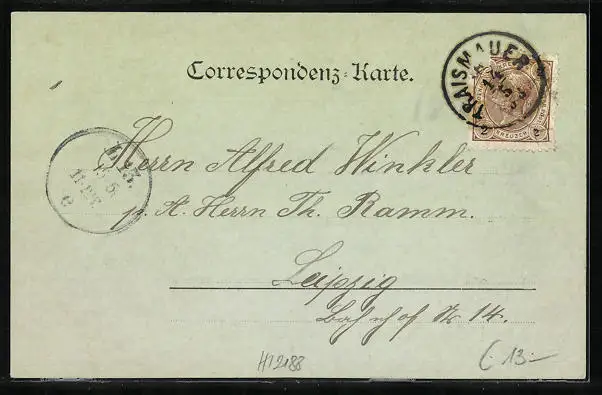 Correspondenz-Karte.
TRAISMAUER
2 KREUZER 2
Herrn Alfred Winkler
p. A. Herrn Th. Ramm.
Leipzig
Bahnhof Str 14.
H12188
€ 13.-